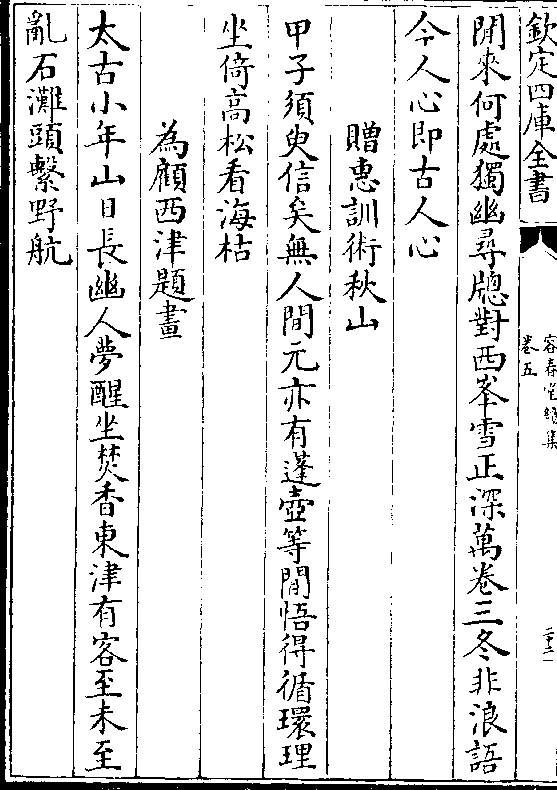 欽定四庫全書
容春堂續集
卷五
閒來何處獨幽尋牕對西峯雪正深萬卷三冬非浪語
今人心即古人心
贈惠訓術秋山
甲子須臾信矣無人間元亦有蓬壺等閒悟得循環理
坐倚高松看海枯
為顧西津題畫
太古小年山日長幽人夢醒坐焚香東津有客至未至
亂石灘頭繫野航